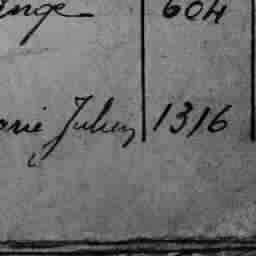 ange 604
arie Julien 1316